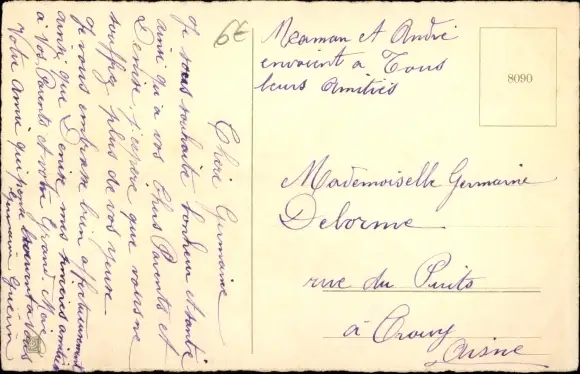 Chère Germaine
Je vous souhaite bonheur et santé
ainsi qu'à vos Chers Parents et
Denise j'espère que vous ne
souffrez plus de vos yeux.
Je vous embrasse bien affectueusement
ainsi que Denise mes sincères amitiés
à vos Parents et votre Grand Mère
Votre Amie qui pense souvent à vous
Germaine Guérin
6€
Maman et André
envoient a Tous
leurs Amitiés
8090
Mademoiselle Germaine
Delorme
rue du Puits
à Crouy
Aisne